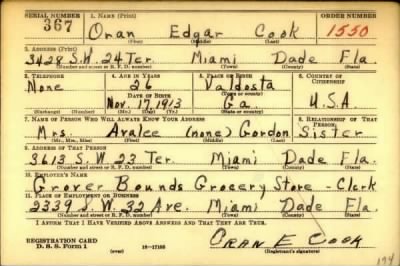 SERIAL NUMBER 1. NAME (Print) ORDER NUMBER
367 Oran Edgar Cook 1550
(First) (Middle) (Last)
2. ADDRESS (Print)
3428 S.W. 24 Ter. Miami Dade Fla.
(Number and street or R. F. D. number) (Town) (County) (State)
3. TELEPHONE 4. AGE IN YEARS 5. PLACE OF BIRTH 6. COUNTRY OF CITIZENSHIP
None 26 Valdosta
DATE OF BIRTH (Town or county)
Nov. 17, 1913 Ga. U.S.A.
(Exchange) (Number) (Mo.) (Day) (Yr.) (State or country)
7. NAME OF PERSON WHO WILL ALWAYS KNOW YOUR ADDRESS 8. RELATIONSHIP OF THAT PERSON
Mrs. Avalee (none) Gordon Sister
(Mr., Mrs., Miss) (First) (Middle) (Last)
9. ADDRESS OF THAT PERSON
3613 S.W. 23 Ter. Miami Dade Fla.
(Number and street or R. F. D. number) (Town) (County) (State)
10. EMPLOYER'S NAME
Grover Bounds Grocery Store - Clerk
11. PLACE OF EMPLOYMENT OR BUSINESS
2339 S.W. 32 Ave. Miami Dade Fla.
(Number and street or R. F. D. number) (Town) (County) (State)
I AFFIRM THAT I HAVE VERIFIED ABOVE ANSWERS AND THAT THEY ARE TRUE.
REGISTRATION CARD
D. S. S. Form 1 (over) 16-17105 Oran E Cook
(Registrant's signature)